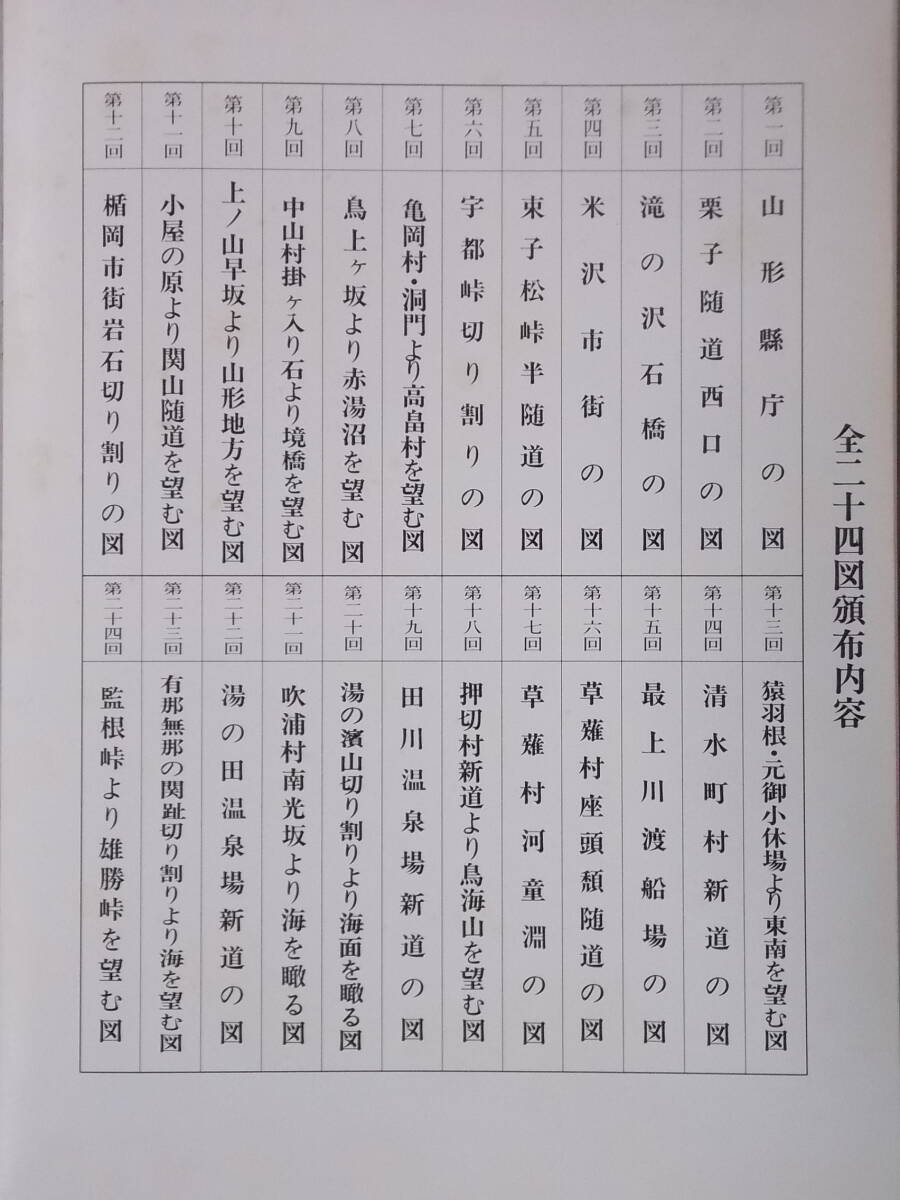 全二十四図頒布内容
第一回 山形縣庁の図
第二回 栗子随道西口の図
第三回 滝の沢石橋の図
第四回 米沢市街の図
第五回 束子松峠半随道の図
第六回 宇都峠切り割りの図
第七回 亀岡村・洞門より高畠村を望む図
第八回 鳥上ヶ坂より赤湯沼を望む図
第九回 中山村掛ヶ入り石より境橋を望む図
第十回 上ノ山早坂より山形地方を望む図
第十一回 小屋の原より関山随道を望む図
第十二回 楯岡市街岩石切り割りの図
第十三回 猿羽根・元御小休場より東南を望む図
第十四回 清水町村新道の図
第十五回 最上川渡船場の図
第十六回 草薙村座頭頽随道の図
第十七回 草薙村河童淵の図
第十八回 押切村新道より鳥海山を望む図
第十九回 田川温泉場新道の図
第二十回 湯の濱山切り割りより海面を瞰る図
第二十一回 吹浦村南光坂より海を瞰る図
第二十二回 湯の田温泉場新道の図
第二十三回 有那無那の関趾切り割りより海を望む図
第二十四回 監根峠より雄勝峠を望む図